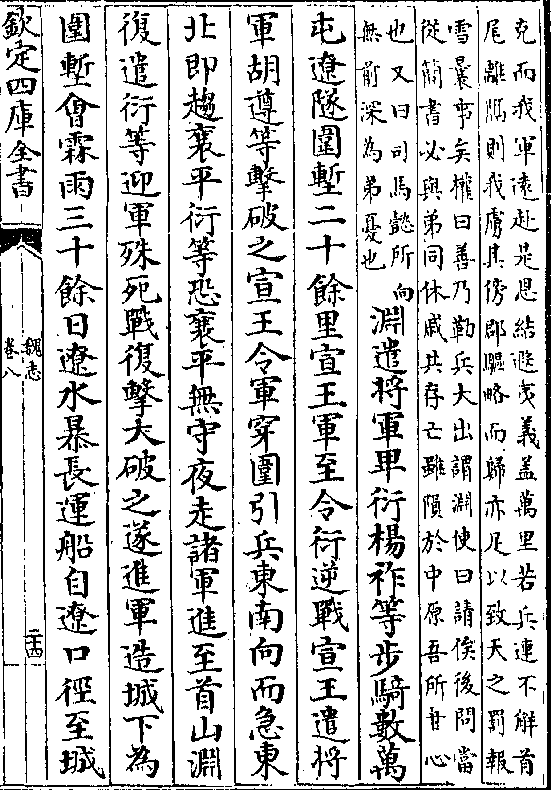 克而我軍遠赴是恩結遐夷義蓋萬里若兵連不解首
尾離隔則我虜其傍郡驅略而歸亦足以致天之罰報
雪曩事矣權曰善乃勒兵大出謂淵使曰請俟後問當
從簡書必與弟同休戚共存亡雖隕於中原吾所甘心
也又曰司馬懿所向
無前深為弟憂也
淵遣將軍卑衍楊祚等步騎數萬
屯遼隧圍塹二十餘里宣王軍至令衍逆戰宣王遣將
軍胡遵等擊破之宣王令軍穿圍引兵東南向而急東
北即趨襄平衍等恐襄平無守夜走諸軍進至首山淵
復遣衍等迎軍殊死戰復擊大破之遂進軍造城下為
圍塹會霖雨三十餘日遼水暴長運船自遼口徑至城
欽定四庫全書
魏志
卷八
二十四